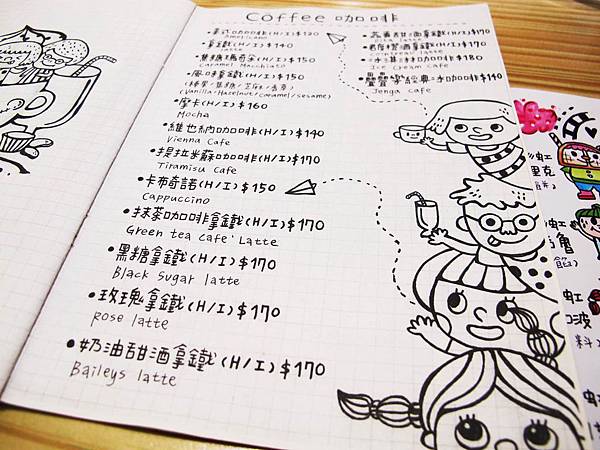 Coffee 咖啡
美式咖啡(H/I)$120
Americano
拿鐵(H/I)$140
Latte
焦糖瑪奇朵(H/I)$150
Caramel Macchiato
風味拿鐵(H/I)$150
(榛果/焦糖/芝麻/香草)
(Vanilla/Hazelnut/caramel/sesame)
摩卡(H/I)$160
Mocha
維也納咖啡(H/I)$140
Vienna Cafe
提拉米蘇咖啡(H/I)$170
Tiramisu Cafe
卡布奇諾(H/I)$150
Cappuccino
抹茶咖啡拿鐵(H/I)$170
Green tea cafe Latte
黑糖拿鐵(H/I)$170
Black Sugar latte
玫瑰拿鐵(H/I)$170
rose latte
奶油甜酒拿鐵(H/I)$170
Baileys latte
甜酒拿鐵(H/I)$170
latte
君度橙酒拿鐵(H/I)$170
Cointreau latte
冰淇淋咖啡(H/I)$180
Ice Cream Cafe
疊疊樂經典冰咖啡$140
Jenga Cafe
虹
里克
餅)
虹
角
餡)
虹
波
料)